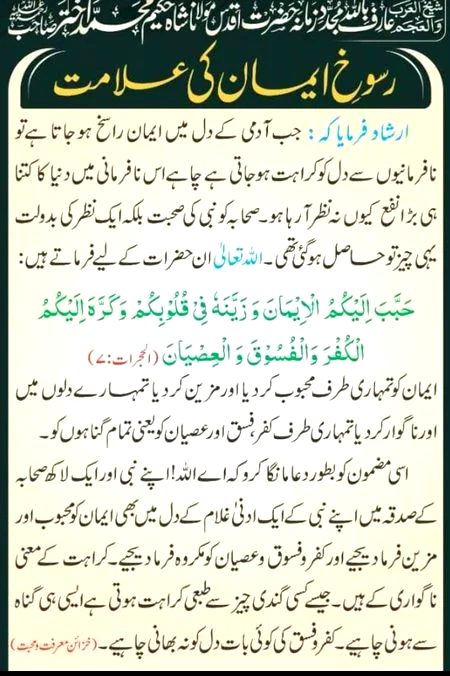 شیخ العرب والعجم عارف باللہ مجدد زمانہ حضرت اقدس مولانا شاہ حکیم محمد اختر صاحب
رسوخِ ایمان کی علامت
ارشاد فرمایا کہ: جب آدمی کے دل میں ایمان راسخ ہوجاتا ہے تو
نافرمانیوں سے دل کو کراہت ہوجاتی ہے چاہے اس نافرمانی میں دنیا کا کتنا
ہی بڑا نفع کیوں نہ نظر آرہا ہو۔ صحابہ کو نبی کی صحبت بلکہ ایک نظر کی بدولت
یہی چیز تو حاصل ہوگئی تھی۔ اللہ تعالیٰ ان حضرات کے لیے فرماتے ہیں:
حَبَّبَ اِلَیْکُمُ الْاِیْمَانَ وَ زَیَّنَہٗ فِیْ قُلُوْبِکُمْ وَ کَرَّہَ اِلَیْکُمُ
الْکُفْرَ وَالْفُسُوْقَ وَ الْعِصْیَانَ (الحجرات:۷)
ایمان کو تمہاری طرف محبوب کردیا اور مزین کردیا تمہارے دلوں میں
اور ناگوار کردیا تمہاری طرف کفر، فسق اور عصیان کو یعنی تمام گناہوں کو۔
اسی مضمون کو بطور دعا مانگا کرو کہ اے اللہ! اپنے نبی اور ایک لاکھ صحابہ
کے صدقہ میں اپنے نبی کے ایک ادنیٰ غلام کے دل میں بھی ایمان کو محبوب اور
مزین فرما دیجیے اور کفر و فسوق و عصیان کو مکروہ فرما دیجیے۔ کراہت کے معنی
ناگواری کے ہیں۔ جیسے کسی گندی چیز سے طبعی کراہت ہوتی ہے ایسی ہی گناہ
سے ہونی چاہیے۔ کفر و فسق کی کوئی بات دل کو نہ بھانی چاہیے۔ (خزائن معرفت و محبت)